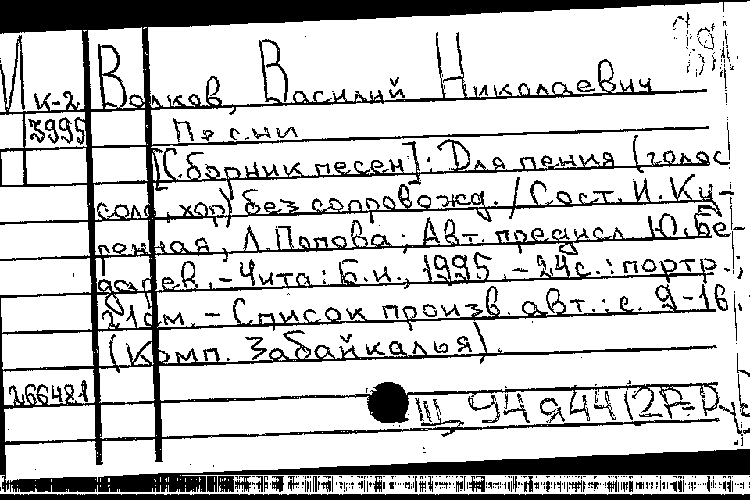 И к-2 Волков, Василий Николаевич
3995 Песни
[Сборник песен]: Для пения (голос
соло, хор) без сопровожд. / Сост. И. Ку-
ренная, Л. Попова; Авт. предисл. Ю. Бе-
дарев. - Чита: Б.и., 1995. - 24с.: портр.;
21см. - Список произв. авт.: с. 9-16.
(Комп. Забайкалья).
266481
Щ 94 я44(2Р=Рус